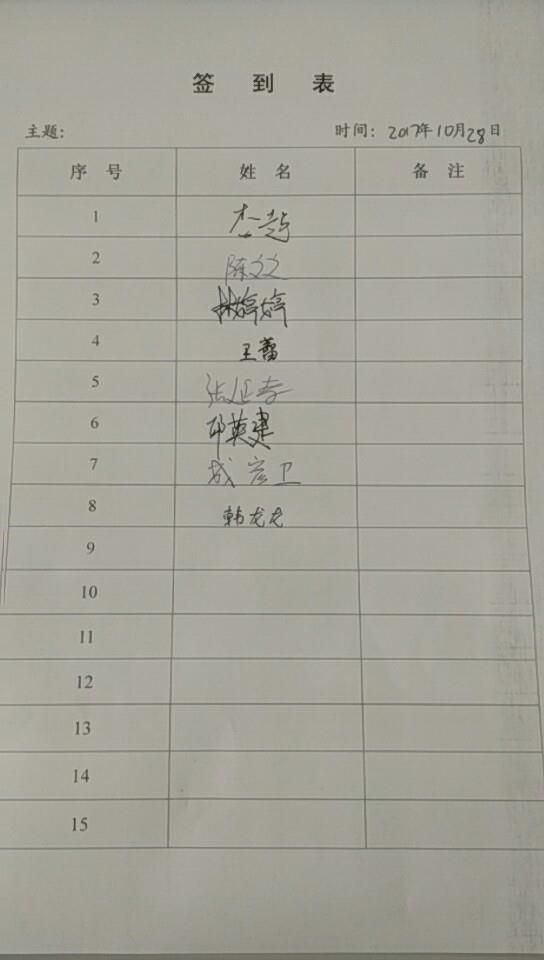 签 到 表
主题: 时间: 2017年10月28日
序 号 姓 名 备 注
1
2 陈
3 林婷婷
4 王蕾
5 张延
6 邱英建
7 成彦卫
8 韩龙龙
9
10
11
12
13
14
15